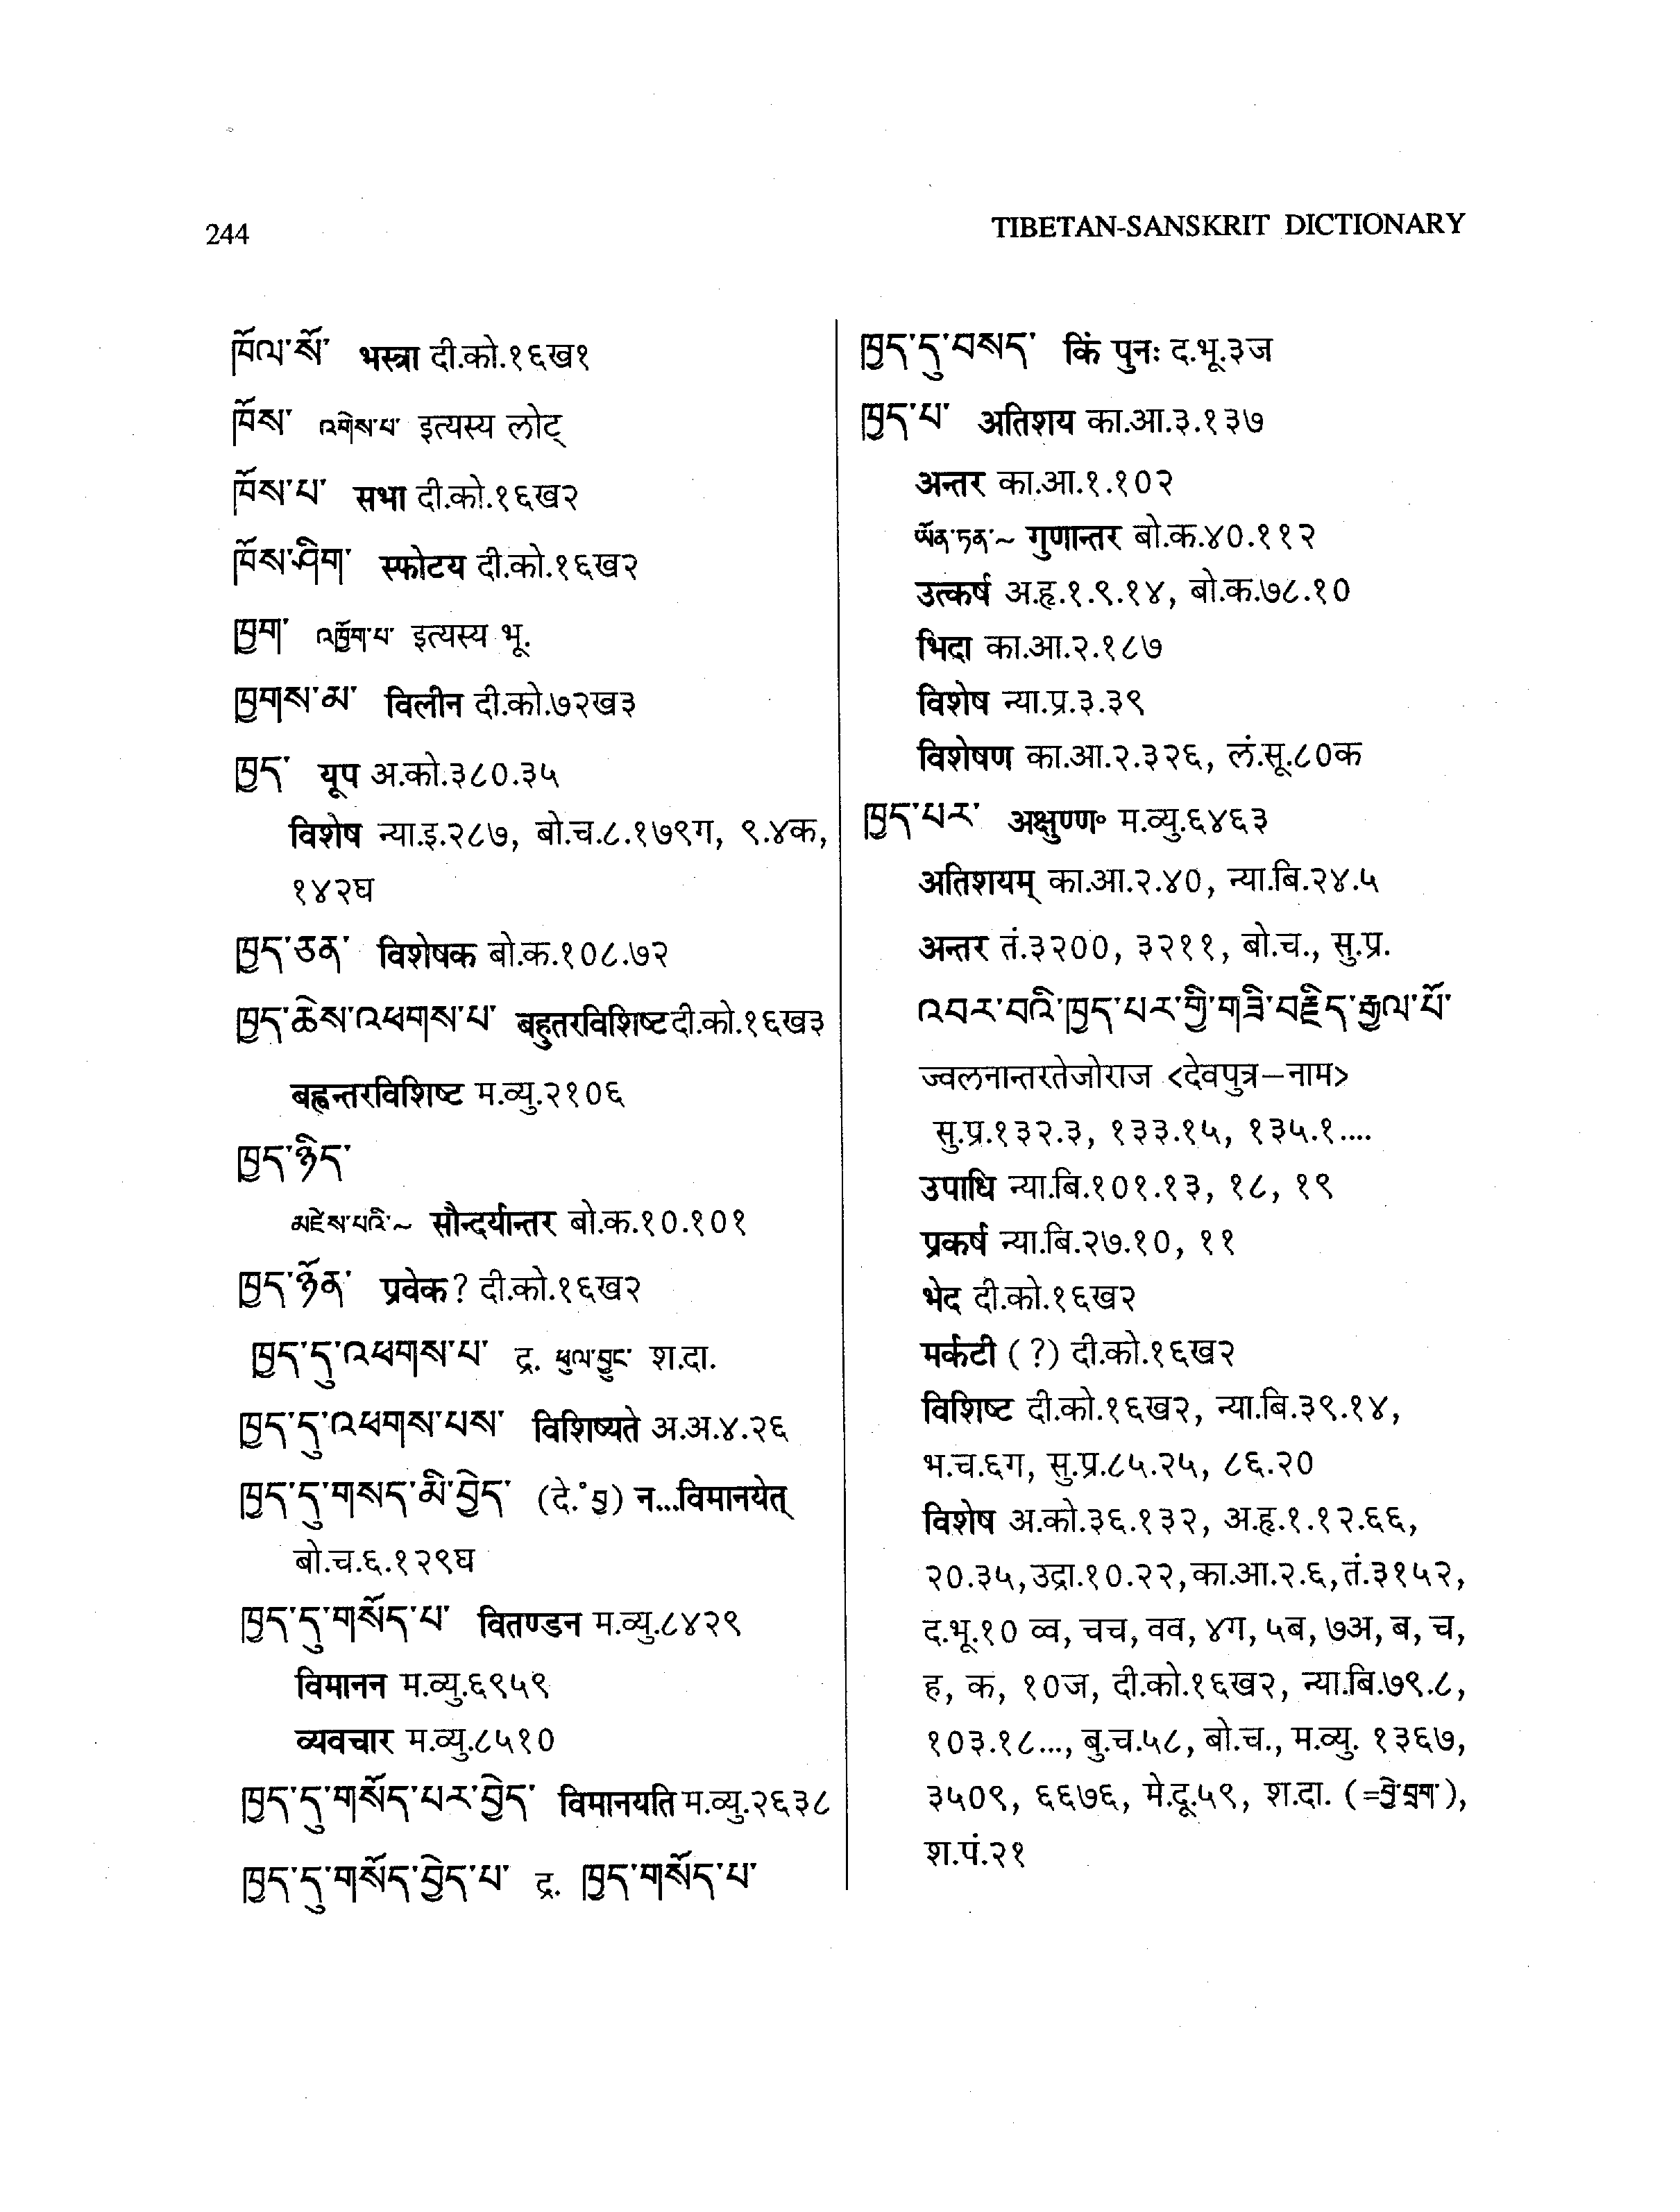 244
TIBETAN-SANSKRIT DICTIONARY
ཁོལ་སོ་ भस्त्रा दी.को.१६ख१
ཁོས་ འགེས་པ་ इत्यस्य लोट्
ཁོས་པ་ सभा दी.को.१६ख२
ཁོས་ཤིག་ स्फोटय दी.को.१६ख२
ཁྱག་ འཁྱོག་པ་ इत्यस्य भू.
ཁྱགས་མ་ विलीन दी.को.७२ख३
ཁྱད་ यूप अ.को.३८०.३५
विशेष न्या.इ.२८७, बो.च.८.१७९ग, ९.४क,
१४२घ
ཁྱད་ཅན་ विशेषक बो.क.१०८.७२
ཁྱད་ཆེས་འཕགས་པ་ बहुतरविशिष्ट दी.को.१६ख३
बह्वन्तरविशिष्ट म.व्यु.२१०६
ཁྱད་ཉིད་
མཛེས་པའི་~ सौन्दर्यान्तर बो.क.१०.१०१
ཁྱད་ཉོན་ प्रवेक? दी.को.१६ख२
ཁྱད་དུ་འཕགས་པ་ द्र. ཕུལ་བྱུང་ श.दा.
ཁྱད་དུ་འཕགས་པས་ विशिष्यते अ.अ.४.२६
ཁྱད་དུ་གསད་མི་བྱེད་ (दे.॰ བྱ) न...विमानयेत्
बो.च.६.१२९घ
ཁྱད་དུ་གསོད་པ་ वितण्डन म.व्यु.८४२९
विमानन म.व्यु.६९५९
व्यवचार म.व्यु.८५१०
ཁྱད་དུ་གསོད་པར་བྱེད་ विमानयति म.व्यु.२६३८
ཁྱད་དུ་གསོད་བྱེད་པ་ द्र. ཁྱད་གསོད་པ་
ཁྱད་དུ་བསད་ किं पुनः द.भू.३ज
ཁྱད་པ་ अतिशय का.आ.३.१३७
अन्तर का.आ.१.१०२
ཡོན་ཏན་~ गुणान्तर बो.क.४०.११२
उत्कर्ष अ.हृ.१.९.१४, बो.क.७८.१०
भिदा का.आ.२.१८७
विशेष न्या.प्र.३.३९
विशेषण का.आ.२.३२६, लं.सू.८०क
ཁྱད་པར་ अक्षुण्ण॰ म.व्यु.६४६३
अतिशयम् का.आ.२.४०, न्या.बि.२४.५
अन्तर तं.३२००, ३२११, बो.च., सु.प्र.
འབར་བའི་ཁྱད་པར་གྱི་གཟི་བརྗིད་རྒྱལ་པོ་
ज्वलनान्तरतेजोराज <देवपुत्र–नाम>
सु.प्र.१३२.३, १३३.१५, १३५.१....
उपाधि न्या.बि.१०१.१३, १८, १९
प्रकर्ष न्या.बि.२७.१०, ११
भेद दी.को.१६ख२
मर्कटी (?) दी.को.१६ख२
विशिष्ट दी.को.१६ख२, न्या.बि.३९.१४,
भ.च.६ग, सु.प्र.८५.२५, ८६.२०
विशेष अ.को.३६.१३२, अ.हृ.१.१२.६६,
२०.३५, उद्रा.१०.२२, का.आ.२.६, तं.३१५२,
द.भू.१० व्व, चच, वव, ४ग, ५ब, ७अ, ब, च,
ह, क, १०ज, दी.को.१६ख२, न्या.बि.७९.८,
१०३.१८..., बु.च.५८, बो.च., म.व्यु. १३६७,
३५०९, ६६७६, मे.दू.५९, श.दा. (=བྱེ་བྲག་),
श.पं.२१